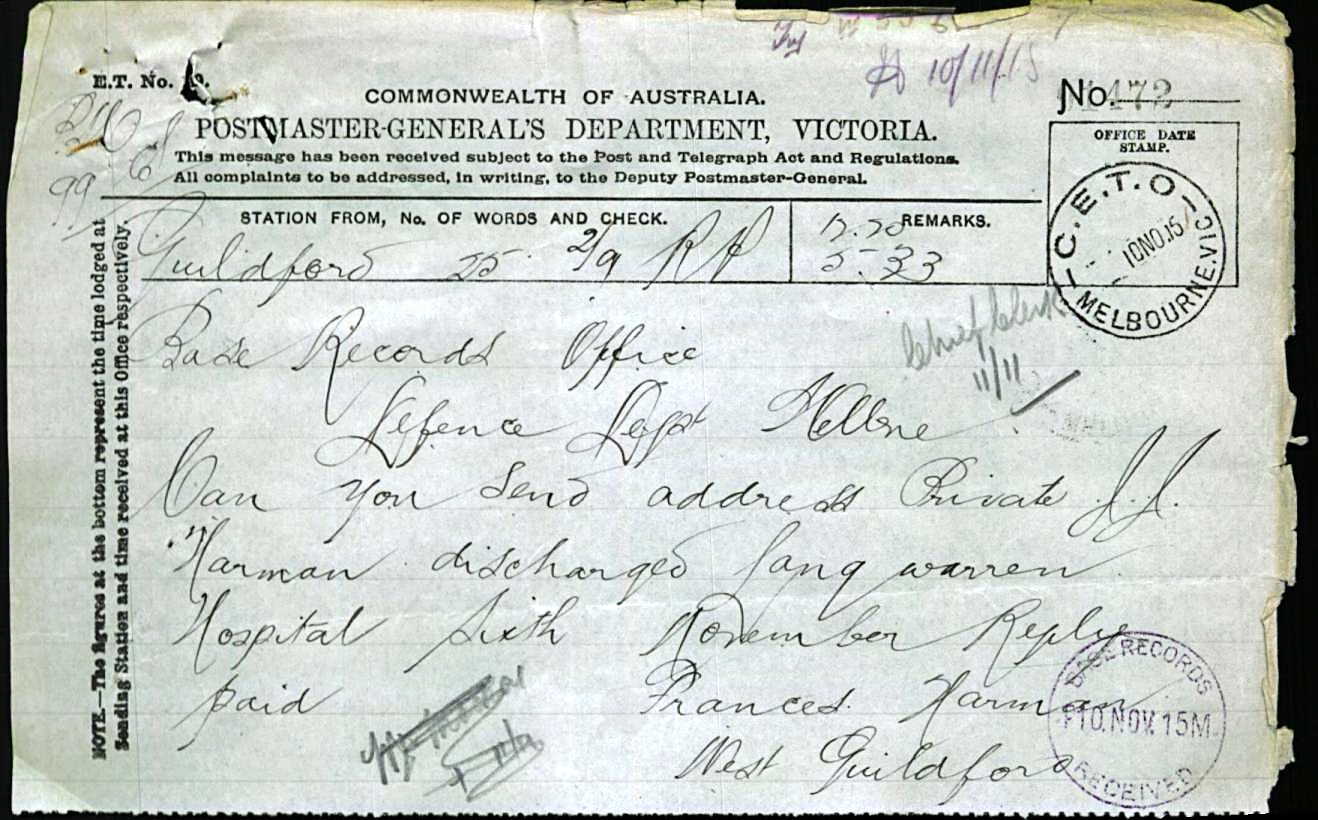 10/11/15
E.T. No.
COMMONWEALTH OF AUSTRALIA.
No. 472
POSTMASTER-GENERAL'S DEPARTMENT, VICTORIA.
OFFICE DATE
STAMP.
This message has been received subject to the Post and Telegraph Act and Regulations.
All complaints to be addressed, in writing, to the Deputy Postmaster-General.
99
C.E.T.O
10NO.15
MELBOURNE.VIC
STATION FROM, No. OF WORDS AND CHECK.
REMARKS.
Guildford 25 2/9 RP
12.20
5.33
NOTE.—The figures at the bottom represent the time lodged at
Sending Station and time received at this Office respectively.
Base Records Office
Chief Clerk
11/11
Defence Dept Melbne
Can you send address Private J.J.
Harman discharged Lang warren
Hospital Sixth November Reply
paid Frances Harman
West Guildford
BASE RECORDS
10.NOV.15
RECEIVED